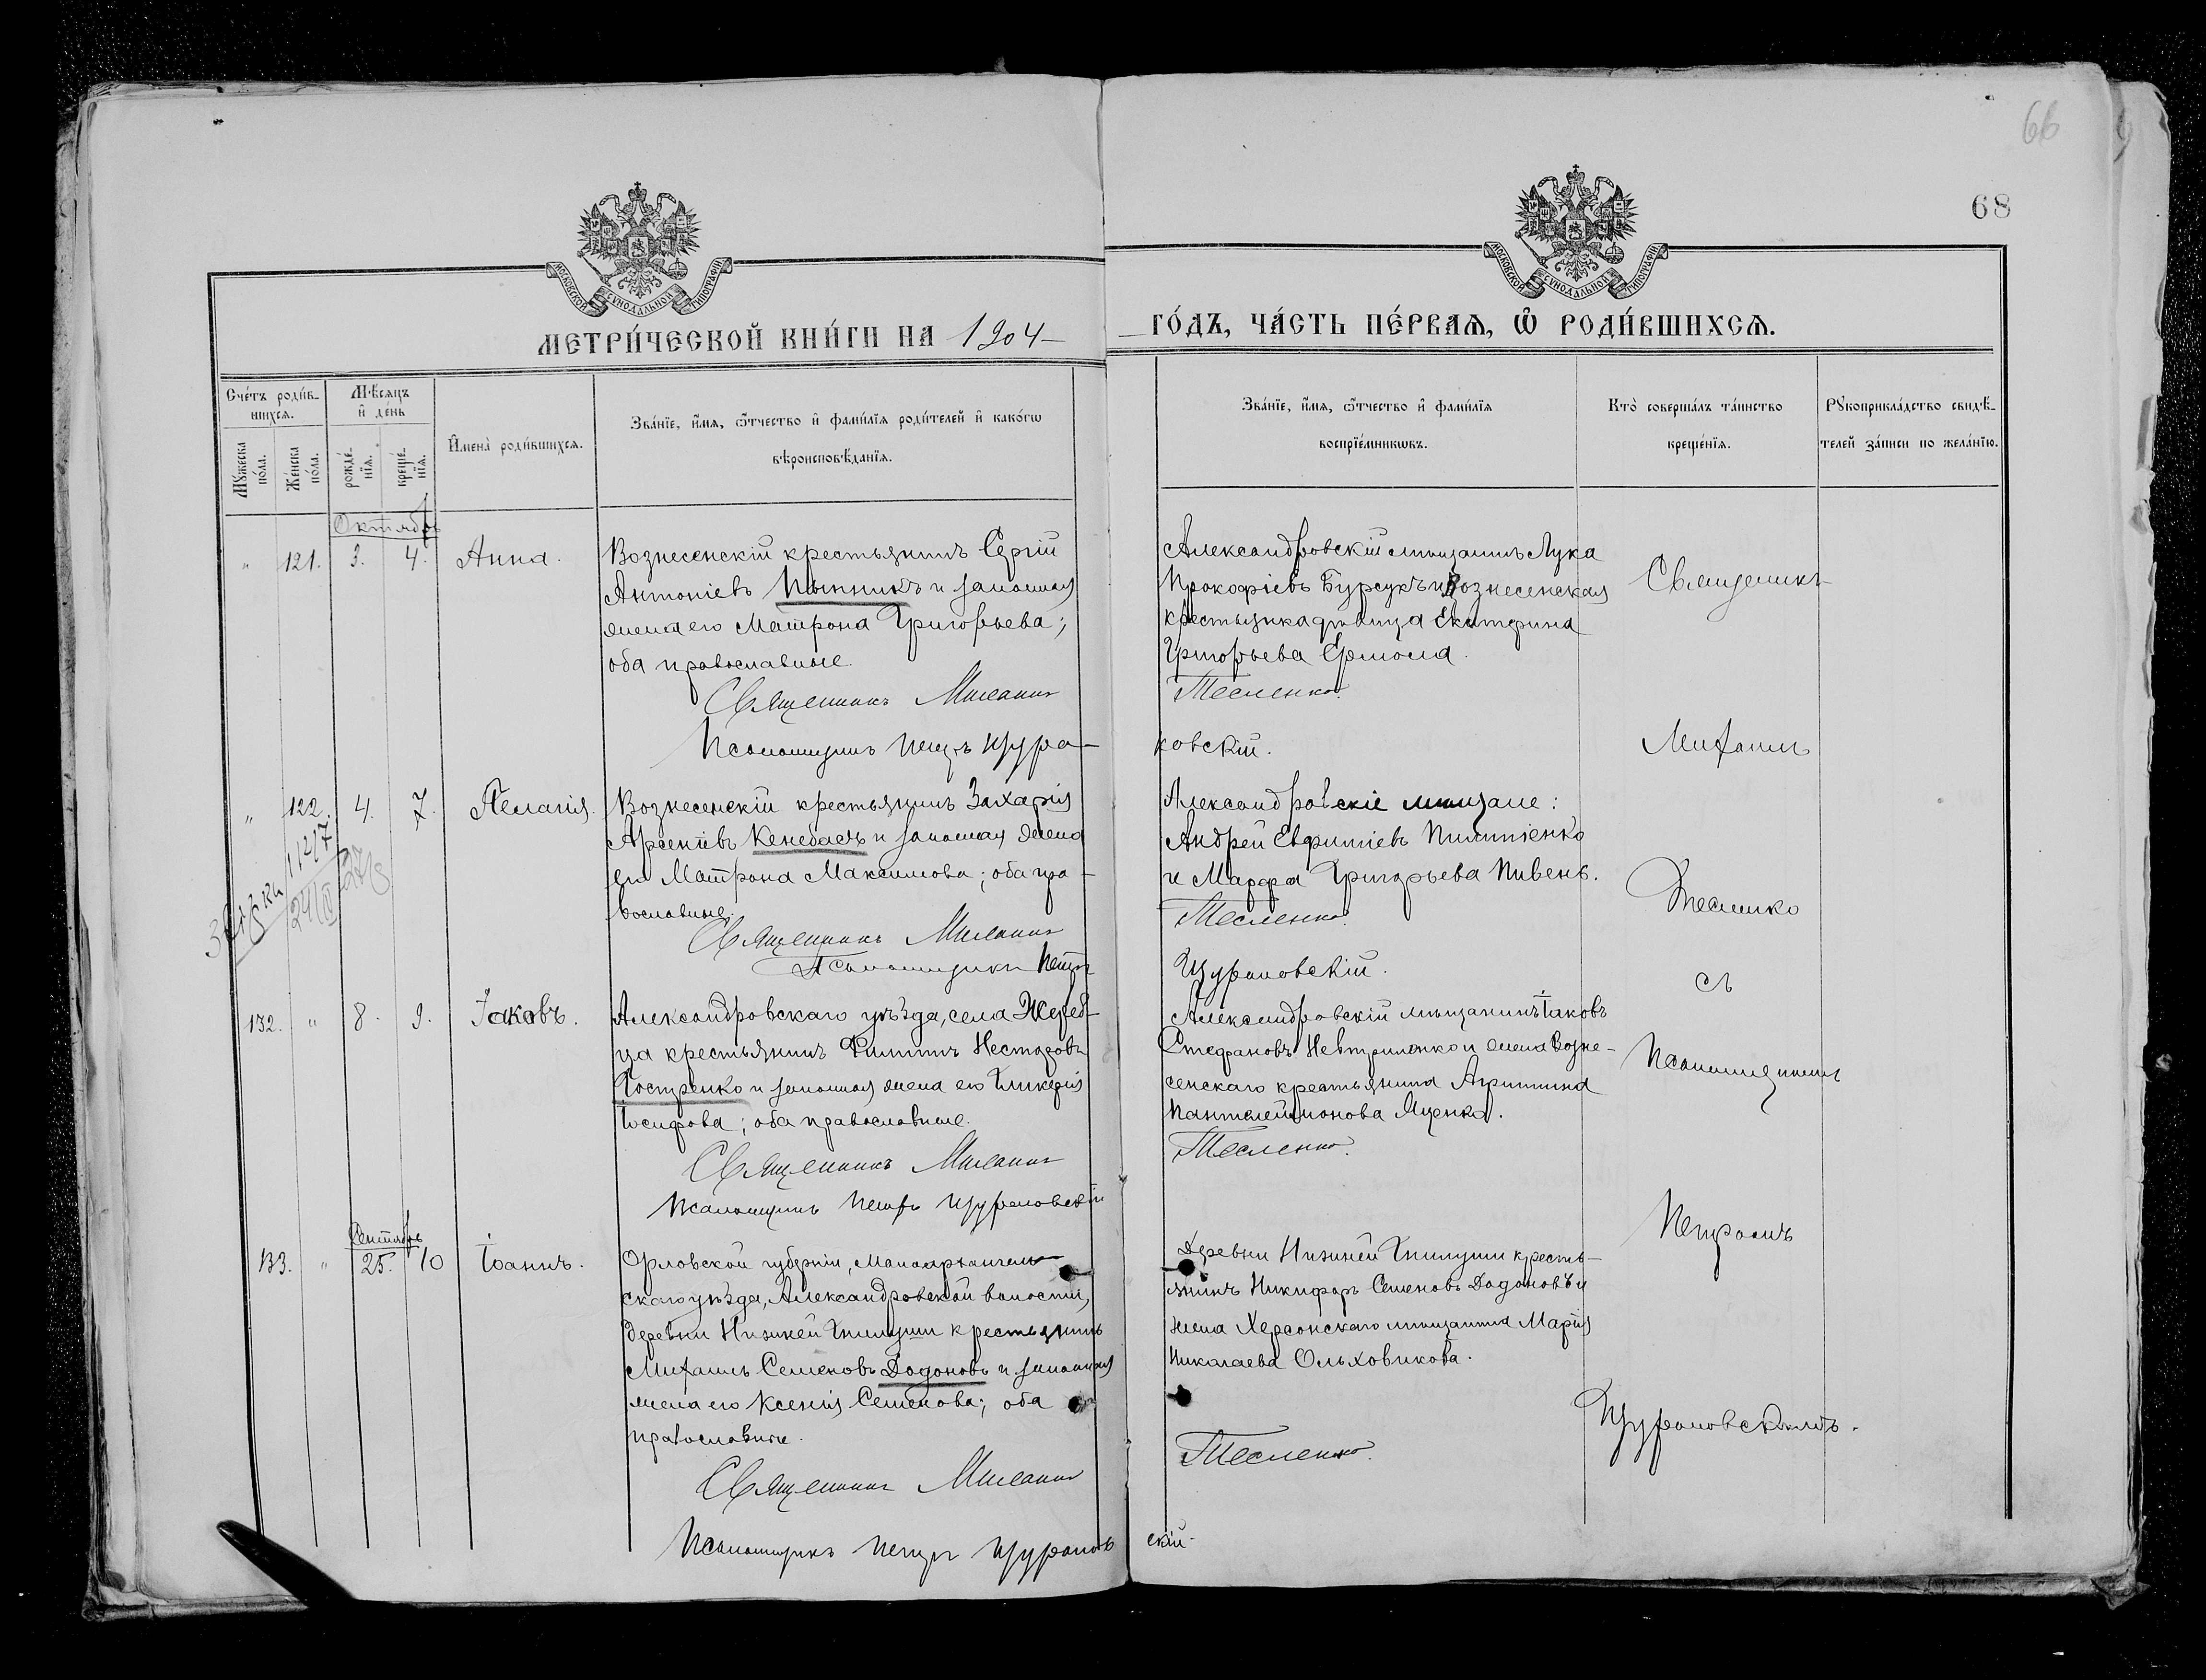 66
68
МОСКОВСКОЙ СѴНОДАЛЬНОЙ ТИПОГРАФІИ
МОСКОВСКОЙ СѴНОДАЛЬНОЙ ТИПОГРАФІИ
МЕТРИ́ЧЕСКОЙ КНИ́ГИ НА 1904
ГО́ДЪ, ЧА́СТЬ ПЕ́РВАѦ, Ѽ РОДИ́ВШИХСѦ.
Сче́тъ роди́в-
шихсѧ.
Мꙋ́жеска по́ла.
Же́нска по́ла.
Мѣ́сѧцъ и҆ де́нь
рожде́-нїѧ.
креще́-нїѧ.
И҆мена̀ роди́вшихсѧ.
Зва́нїе, и҆́мѧ, ѻ҆́тчество и҆ фами́лїѧ роди́телей и҆ како́гѡ
вѣроисповѣ́данїѧ.
Зва́нїе, и҆́мѧ, ѻ҆́тчество и҆ фами́лїѧ
воспрїе́мникѡвъ.
Кто̀ соверша́лъ та́инство
креще́нїѧ.
Рꙋкоприкла́дство свидѣ́-
телей за́писи по жела́нїю.
Октябрь
" 121. 3. 4. Анна.
Вознесенскій крестьянинъ Сергій
Антоніевъ Пынникъ и законная
жена его Матрона Григорьева;
оба православные.
Священникъ Михаилъ
Псаломщикъ Петръ Щура-
Александровскій мѣщанинъ Лука
Прокофіевъ Бурсукъ и Вознесенская
крестьянка дѣвица Екатерина
Григорьева Ермола.
Тесленко.
ковскій.
Священникъ
Михаилъ
Тесленко
съ
Псаломщикомъ
Петромъ
" 122. 4. 7. Пелагія.
Вознесенскій крестьянинъ Захарія
Арсеніевъ Кенебасъ и законная жена
его Матрона Максимова; оба пра-
вославные.
Священникъ Михаилъ
Псаломщикъ Петръ
Александровскіе мѣщане:
Андрей Евфиміевъ Пилипіенко
и Марфа Григорьева Пивень.
Тесленко.
132. " 8. 9. Іаковъ.
Александровскаго уѣзда, села Жереб-
ца крестьянинъ Филиппъ Несторовъ
Костренко и законная жена его Гликерія
Іосифова; оба православные.
Священникъ Михаилъ
Александровскій мѣщанинъ Іаковъ
Стефановъ и жена Возне-
сенскаго крестьянина Агриппина
Пантелеймонова Яценко.
Тесленко.
Сентябрь
133. " 25. 10 Іоаннъ.
Орловской губерніи, Малоархангель-
скаго уѣзда, Александровской волости,
деревни Нижней крестьянинъ
Михаилъ Семеновъ Додоновъ и законная
жена его Ксенія Семенова; оба
православные.
Священникъ Михаилъ
Псаломщикъ Петръ
Деревни Нижней кресть-
янинъ Никифоръ Семеновъ Додоновъ и
жена Херсонскаго мѣщанина Марія
Николаева Ольховикова.
Тесленко.
скій.